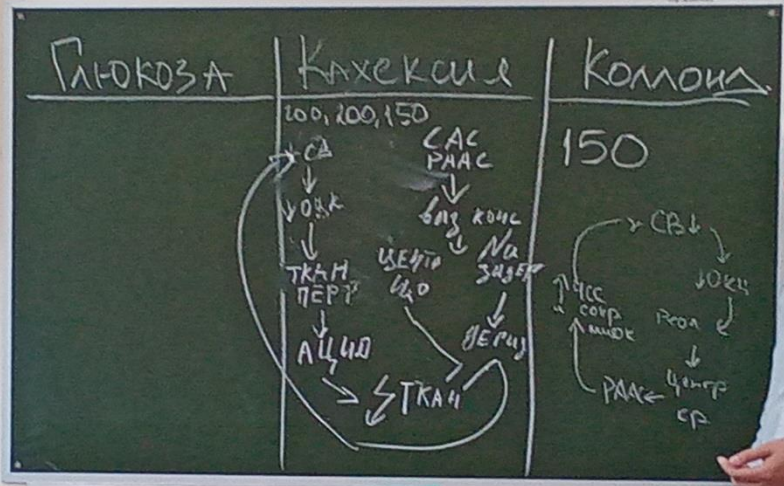 Глюкоза
Кахексия
200, 200, 150
↓ СВ
↓ ОЦК
ТКАН
ПЕРФ
АЦИД
САС
РААС
ваз конс
Na
ЗАДЕР
ЦЕНТР
ЦО
ПЕРИФ
ТКАН
Коллоид
150
СВ↓
↓ОКЦ
Реол
Центр
кр
РААС
↑ЧСС
" сокр
миок